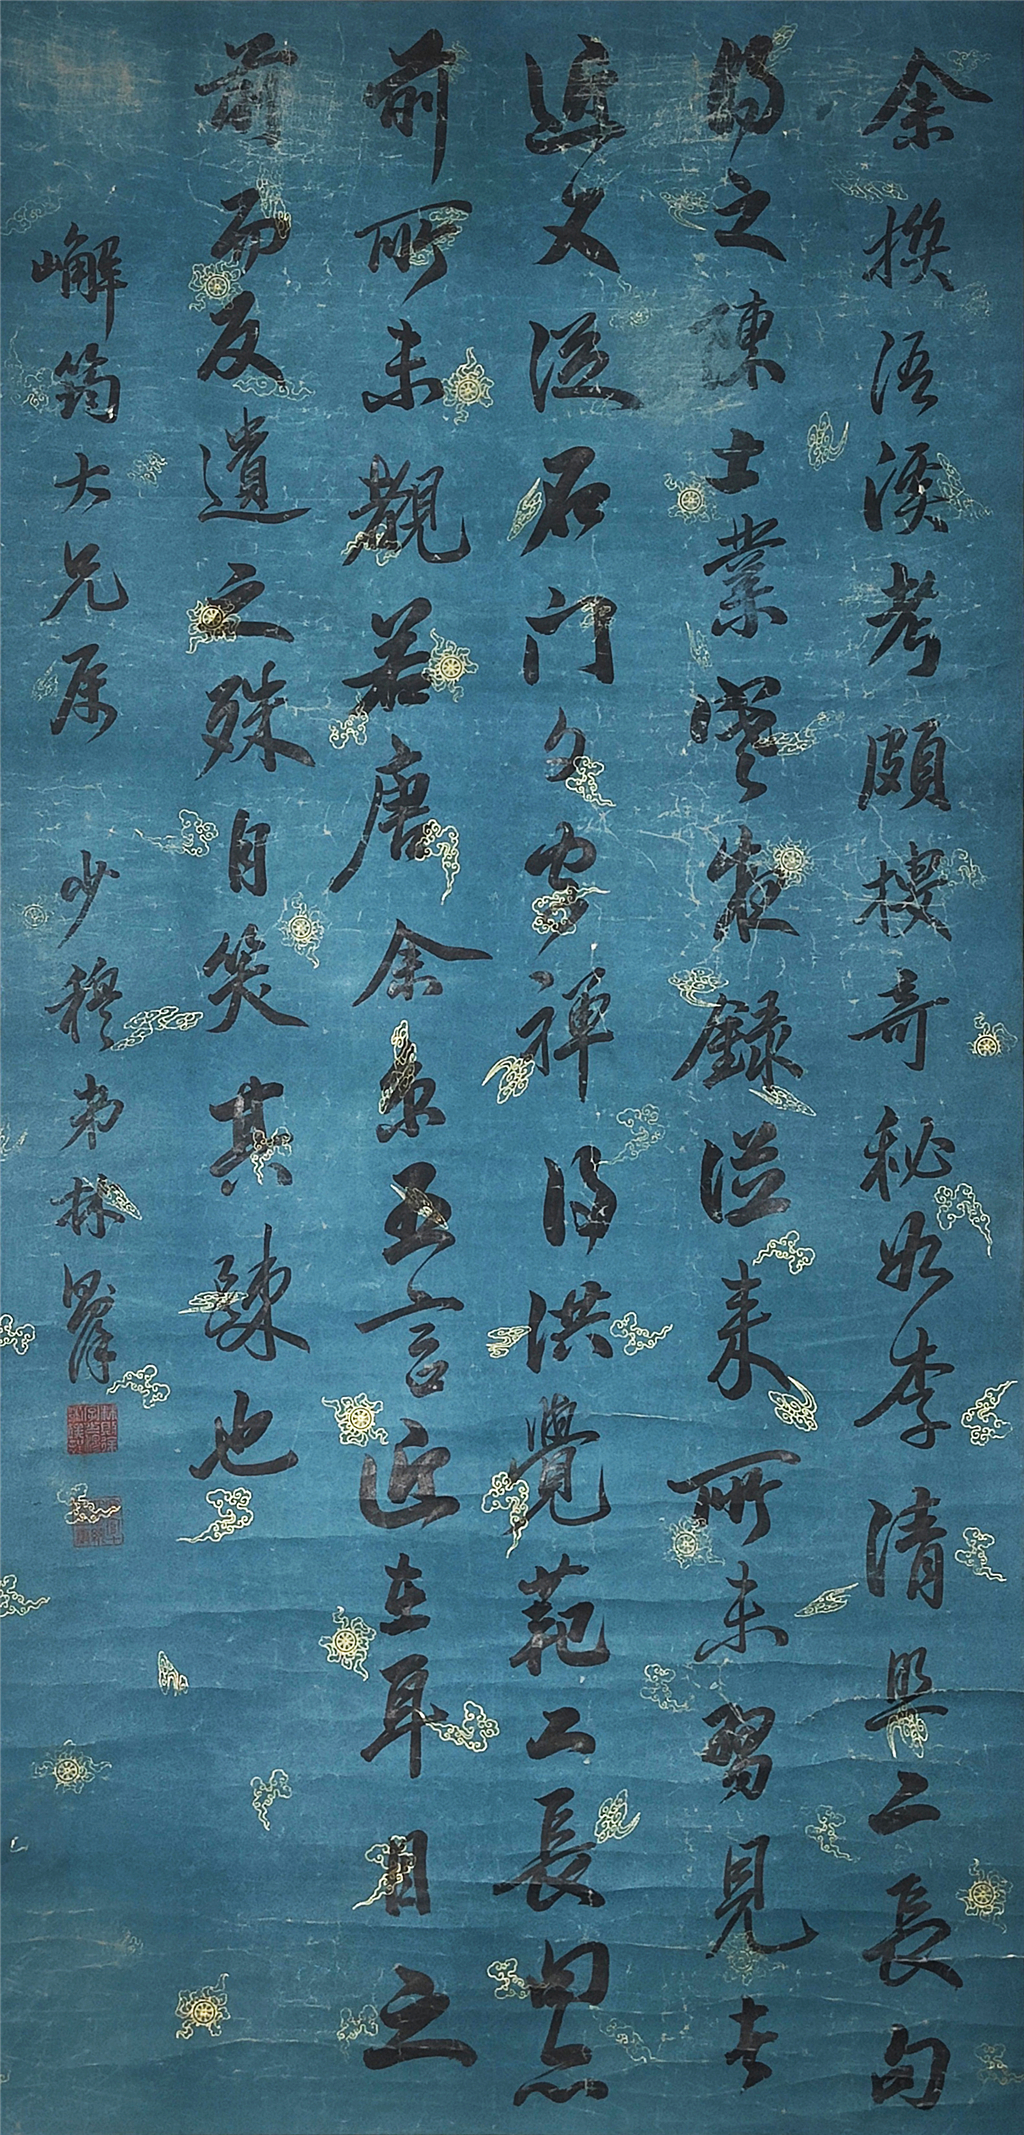 余撰浯溪考頗搜奇秘如李清照二長句
得之陳士業寒夜錄從來所未習見者
近又從石門文字禪得洪覺範二長句亦
前所未覩若唐余
五言近在耳目之
前而反遺之殊自笑其疎也
嶰筠大兄屬 少穆弟林則徐